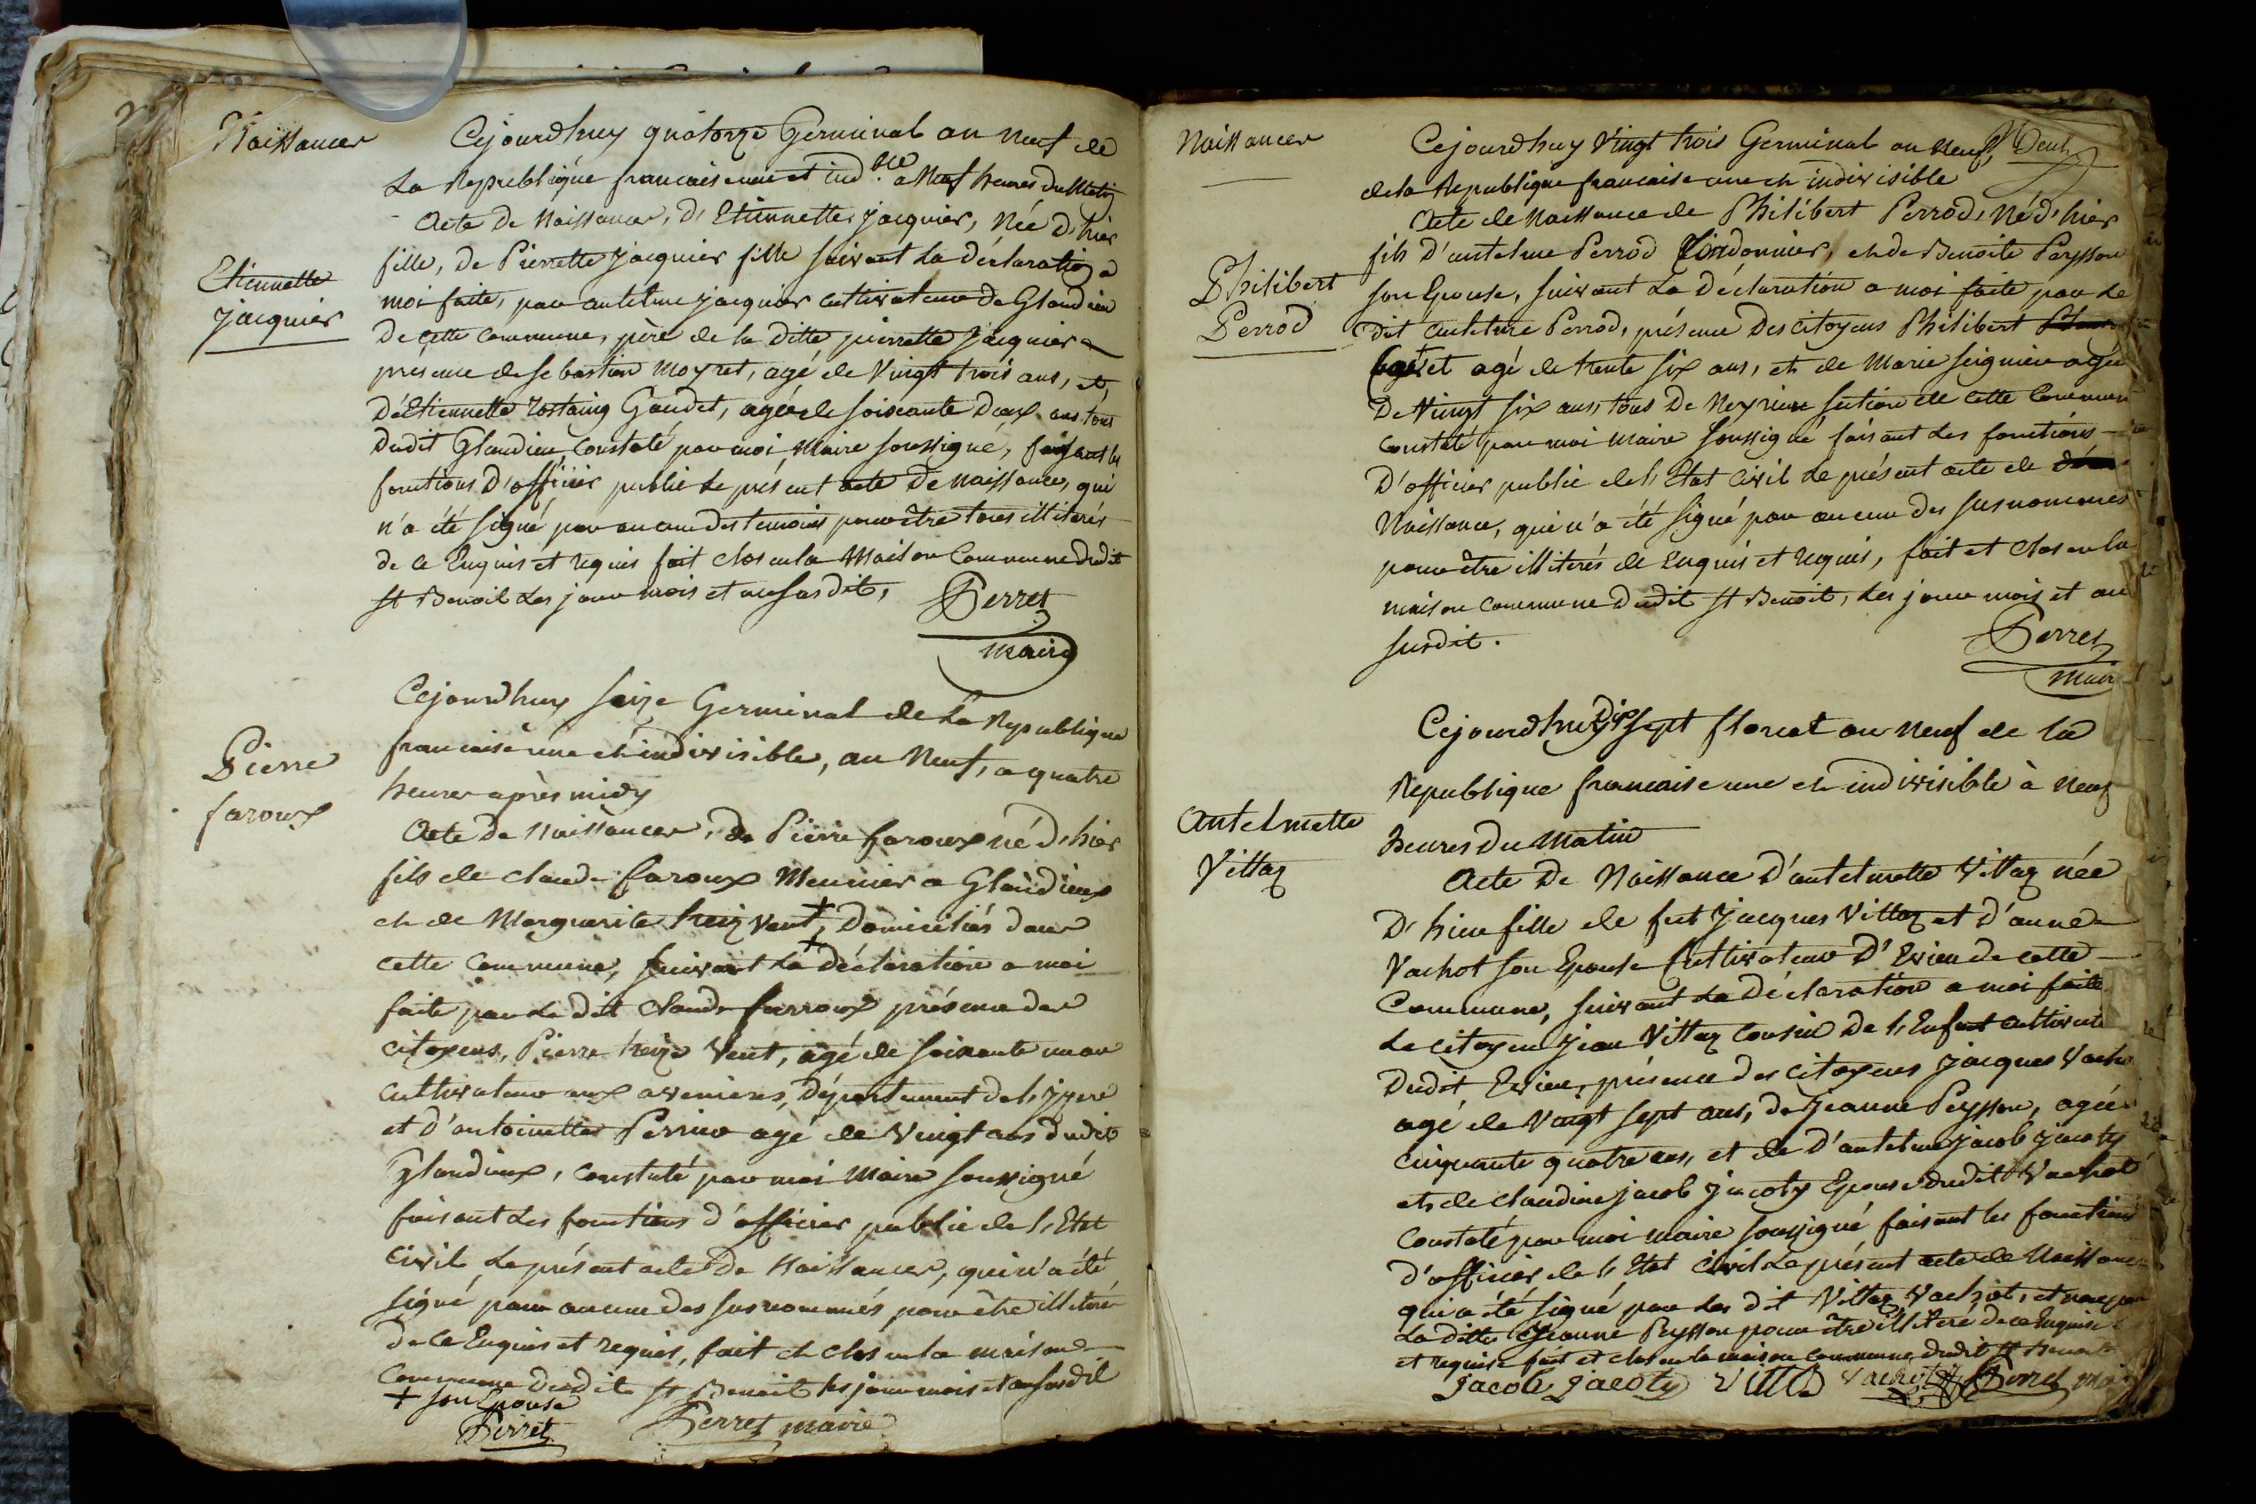 Naissances
Cejourdhuy quatorze Germinal an neuf de
La Republique francaise une et ind.ble a Neuf heures du Matin
Acte de Naissance, d'Etiennette jacquier, Née d'hier
Etiennette
jacquier
fille, de Pierrette jacquier fille suivant La déclaration a
moi faite, par antelme jacquier cultivateur de Glandieu
De cette commune, père de la ditte pierrette jacquier
présence de sebastien Moyret, agé de Vingt trois ans, et
D'Etiennette Rostaing Gaudet, agée de soixante Deux ans tous
Dudit Glandieu, Constaté par moi Maire soussigné, faisant les
fonctions D'officier public Le présent acte De naissance, qui
n'a été signé par aucun des temoins pour être tous illiterés
de ce Enquis et requis fait clos en la Maison Commune dudit
St Benoit Les jour mois et an susdit,
Perret
Maire
Pierre
faroux
Cejourdhuy seize Germinal de La Republique
francaise une et indivisible, an Neuf, a quatre
heures après midy
Acte De Naissances, De Pierre faroux né d'hier
fils de claude faroux Meunier a Glandieux
et de Marguerite Treizvent + Domiciliés dans
cette Commune, suivant La déclaration a moi
faite par Le dit Claude farroux présence des
citoyens, Pierre treize Vent, agé de soixante un an
cultivateur aux avenieres, Département de l'jzere
et d'antoinette Perrier agé de Vingt ans dudit
Glandieux, constaté par moi Maire soussigné
faisant Les fonctions d'officier public de l'Etat
Civil Le présent acte De Naissances, qui n'a été
signé par aucun des susnommés pour être illiteres
de ce Enquis et requis, fait et clos en la maison
Commune Dudit St Benoit les jour mois et an susdit
+ son Epouse
Perret
Perret maire
Naissances
Cejourdhuy Vingt trois Germinal an Neuf
de la Republique francaise une et indivisible
Acte de Naissance de Philibert Perrod, Né d'hier
Philibert
Perrod
fils D'antelme Perrod Cordonnier, et de Benoite Peysson
son Epouse, suivant La Déclaration a moi faite par Le
Dit antelme Perrod, présence Des citoyens Philibert
agé de trente six ans, et de Marie seigniere agée
De Vingt six ans, tous De Neyrieu section de cette Commune
Constaté par moi Maire soussigné faisant Les fonctions
D'officier public de l'Etat Civil Le présent acte de
Naissance, qui n'a été signé par aucun des susnommés
pour être illiterés de Enquis et requis, fait et clos en la
maison commune Dudit St Benoit, Les jour mois et an
susdit.
Perret
Maire
Cejourdhuy Dix sept floreal an Neuf de la
Republique francaise une et indivisible à Neuf
heures Du Matin
Antelmette
Vittaz
Acte De Naissance D'antelmette Vittaz née
D'hier fille de fut Jacques Vittaz et d'anne
Vachot son Epouse Cultivateur D'Evieu de cette
Commune, suivant La Déclaration a moi faite
Le citoyen Jean Vittaz Cousin De l'Enfant cultivateur
Dudit Evieu, présence des citoyens Jacques Vachot
agé de Vingt sept ans, de Jeanne Peysson, agée
cinquante quatre ans, et de D'antelme jacob jacoty
et de claudine jacob jacoty Epouse dudit Vachot
Constaté par moi Maire soussigné faisant les fonctions
d'officier de l'Etat civil Le présent acte de Naissance
qui a été signé par Les dit Vittaz Vachot, et non par
La ditte Jeanne Peysson pour être illiteré de ce Enquise
et requise fait et clos en la maison commune dudit St Benoit
jacob jacoty Vitta Vachot Perret maire